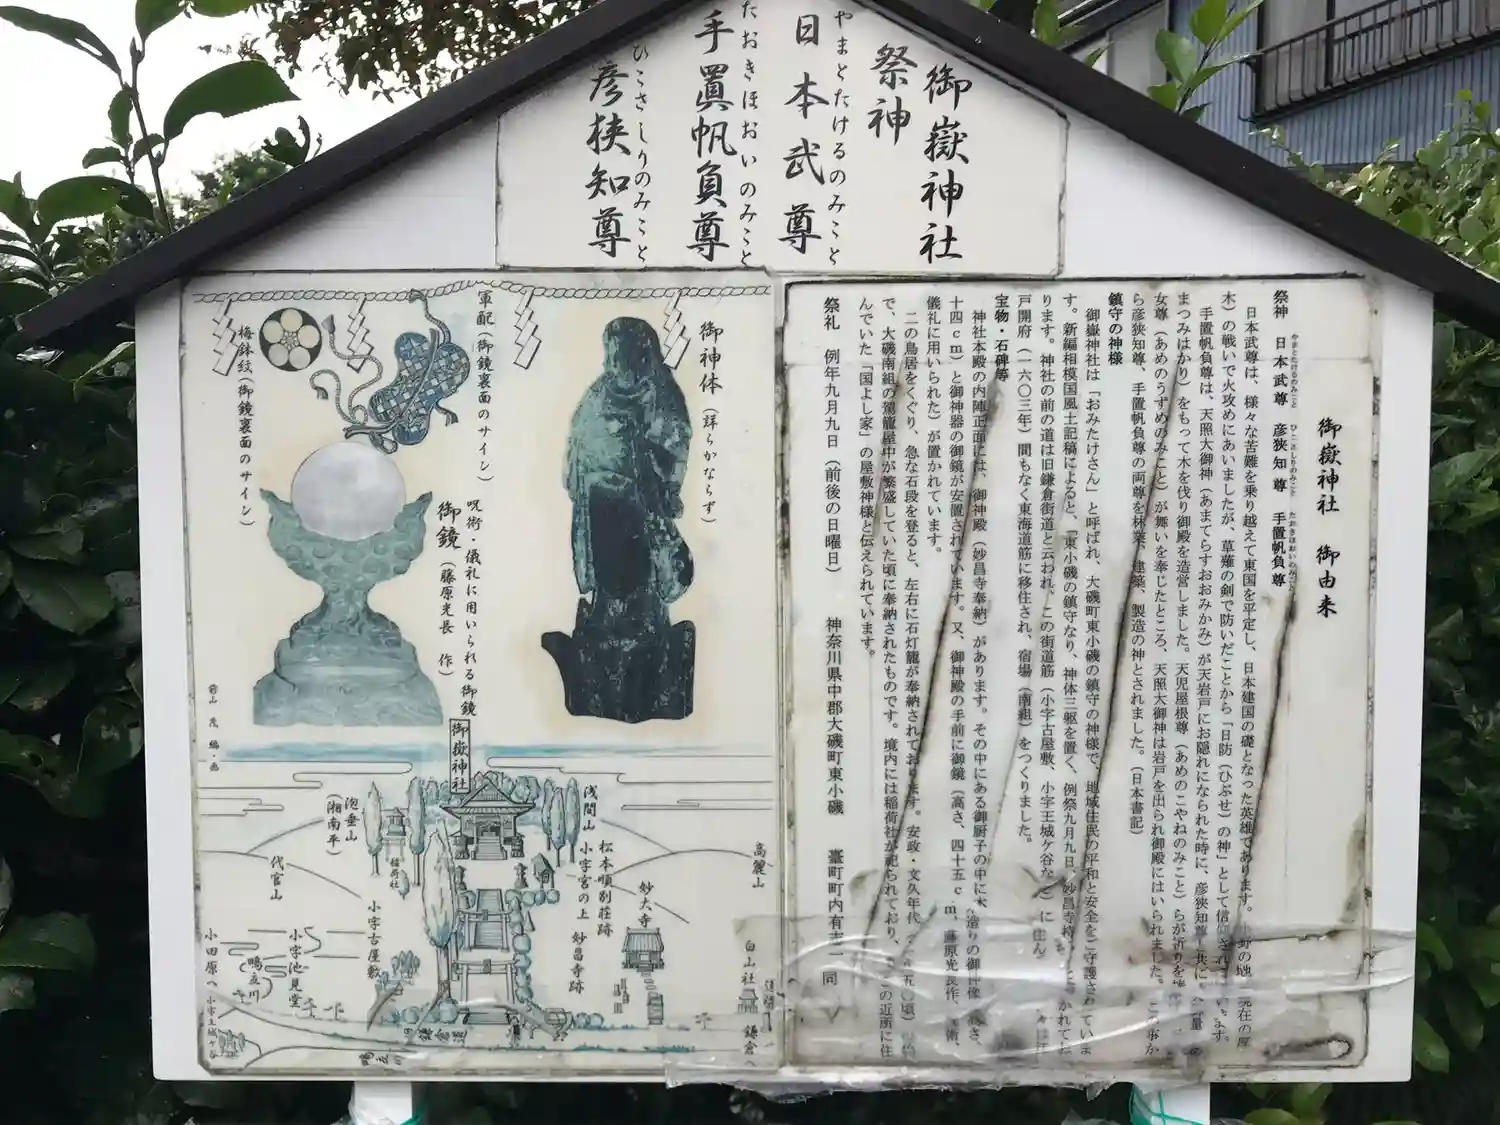 御嶽神社
祭神
日本武尊
やまとたけるのみこと
手置帆負尊
たおきほおいのみこと
彦狭知尊
ひこさしりのみこと
御嶽神社 御由来
祭神 日本武尊 彦狭知尊 手置帆負尊
やまとたけるのみこと ひこさしりのみこと たおきほおいのみこと
日本武尊は、様々な苦難を乗り越えて東国を平定し、日本建国の礎となった英雄であります。
木）の戦いで火攻めにあいましたが、草薙の剣で防いだことから「日防（ひぶせ）の神」として信仰され
手置帆負尊は、天照大御神（あまてらすおおみかみ）が天岩戸にお隠れになられた時に、彦狭知尊と共に
まつみはかり）をもって木を伐り御殿を造営しました。天児屋根尊（あめのこやねのみこと）らが祈りを捧
女尊（あめのうずめのみこと）が舞いを奉じたところ、天照大御神は岩戸を出られ御殿にはいられました。
ら彦狭知尊、手置帆負尊の両尊を林業、建築、製造の神とされました。（日本書記）
鎮守の神様
御嶽神社は「おみたけさん」と呼ばれ、大磯町東小磯の鎮守の神様で、地域住民の平和と安全をご守護されていま
す。新編相模国風土記稿によると、「東小磯の鎮守なり、神体三躯を置く、例祭九月九日、妙昌寺持
ります。神社の前の道は旧鎌倉街道と云われ、この街道筋（小字古屋敷、小字王城ケ谷など）に住
戸開府（一六〇三年）間もなく東海道筋に移住され、宿場（南組）をつくりました。
宝物・石碑等
神社本殿の内陣正面には、御神殿（妙昌寺奉納）があります。その中にある御厨子の中に木造りの御神像
十四ｃｍ）と御神器の御鏡が安置されています。又、御神殿の手前に御鏡（高さ、四十五ｃｍ、藤原光長作、
儀礼に用いられた）が置かれています。
二の鳥居をくぐり、急な石段を登ると、左右に石灯籠が奉納されております。安政・文久年代
で、大磯南組の駕籠屋中が繁盛していた頃に奉納されたものです。境内には稲荷社が祀られており、この近所に住
んでいた「国よし家」の屋敷神様と伝えられています。
祭礼 例年九月九日（前後の日曜日） 神奈川県中郡大磯町東小磯 臺町町内有志一同
御神体（詳らかならず）
軍配（御鏡裏面のサイン）
梅鉢紋（御鏡裏面のサイン）
呪術・儀礼に用いられる御鏡
御鏡（藤原光長 作）
前山 茂 編・画
御嶽神社
浅間山
松本順別荘跡
小字宮の上
妙昌寺跡
妙大寺
高麗山
白山社
鎌倉へ
泡垂山
（湘南平）
代官山
稲荷社
小字古屋敷
小字池見堂
鴫立川
小田原へ
小字王城ケ谷
旧鎌倉道
鴫立川